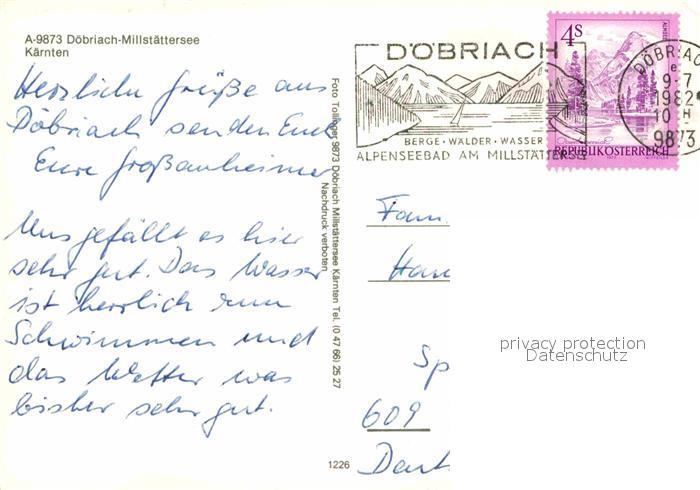 A-9873 Döbriach-Millstättersee
Kärnten
Herzliche Grüße aus
Döbriach senden Euch
Eure Großauheimer
Uns gefällt es hier
sehr gut. Das Wasser
ist herrlich zum
Schwimmen und
das Wetter war
bisher sehr gut.
Foto Tollinger 9873 Döbriach Millstättersee Kärnten Tel. (0 47 66) 25 27
Nachdruck verboten
1226
DÖBRIACH
BERGE · WÄLDER · WASSER
ALPENSEEBAD AM MILLSTÄTTERSEE
4S
REPUBLIK ÖSTERREICH
DÖBRIAC
1982
10 H
9873
Fam.
Han
Sp
609
privacy protection
Datenschutz